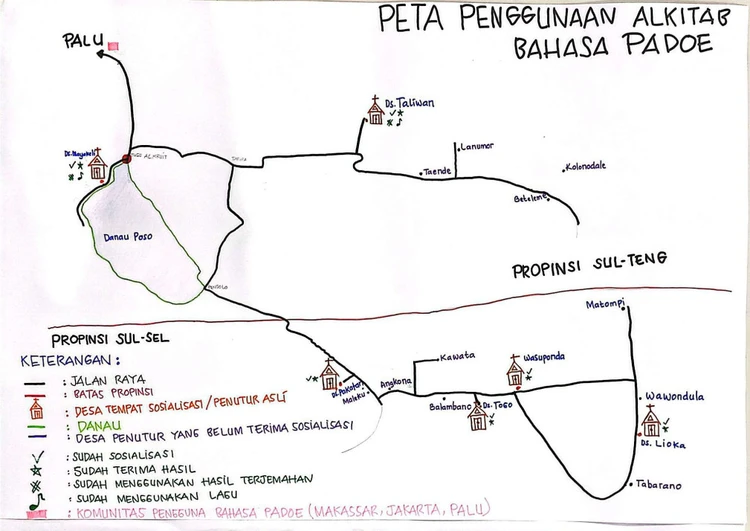 PETA PENGGUNAAN ALKITAB
BAHASA PADOE
PALU
Ds. Taliwan
Lanumor
Taende
Kolonodale
Beteleme
Danau Poso
PROPINSI SUL-TENG
PROPINSI SUL-SEL
Matompi
KETERANGAN:
: JALAN RAYA
: BATAS PROPINSI
: DESA TEMPAT SOSIALISASI/PENUTUR ASLI
: DANAU
: DESA PENUTUR YANG BELUM TERIMA SOSIALISASI
: SUDAH SOSIALISASI
: SUDAH TERIMA HASIL
: SUDAH MENGGUNAKAN HASIL TERJEMAHAN
: SUDAH MENGGUNAKAN LAGU
: KOMUNITAS PENGGUNA BAHASA PADOE (MAKASSAR, JAKARTA, PALU)
Kawata
Wasuponda
Angkona
Maleku
Balambano
Ds. Togo
Wawondula
Ds. Lioka
Tabarano